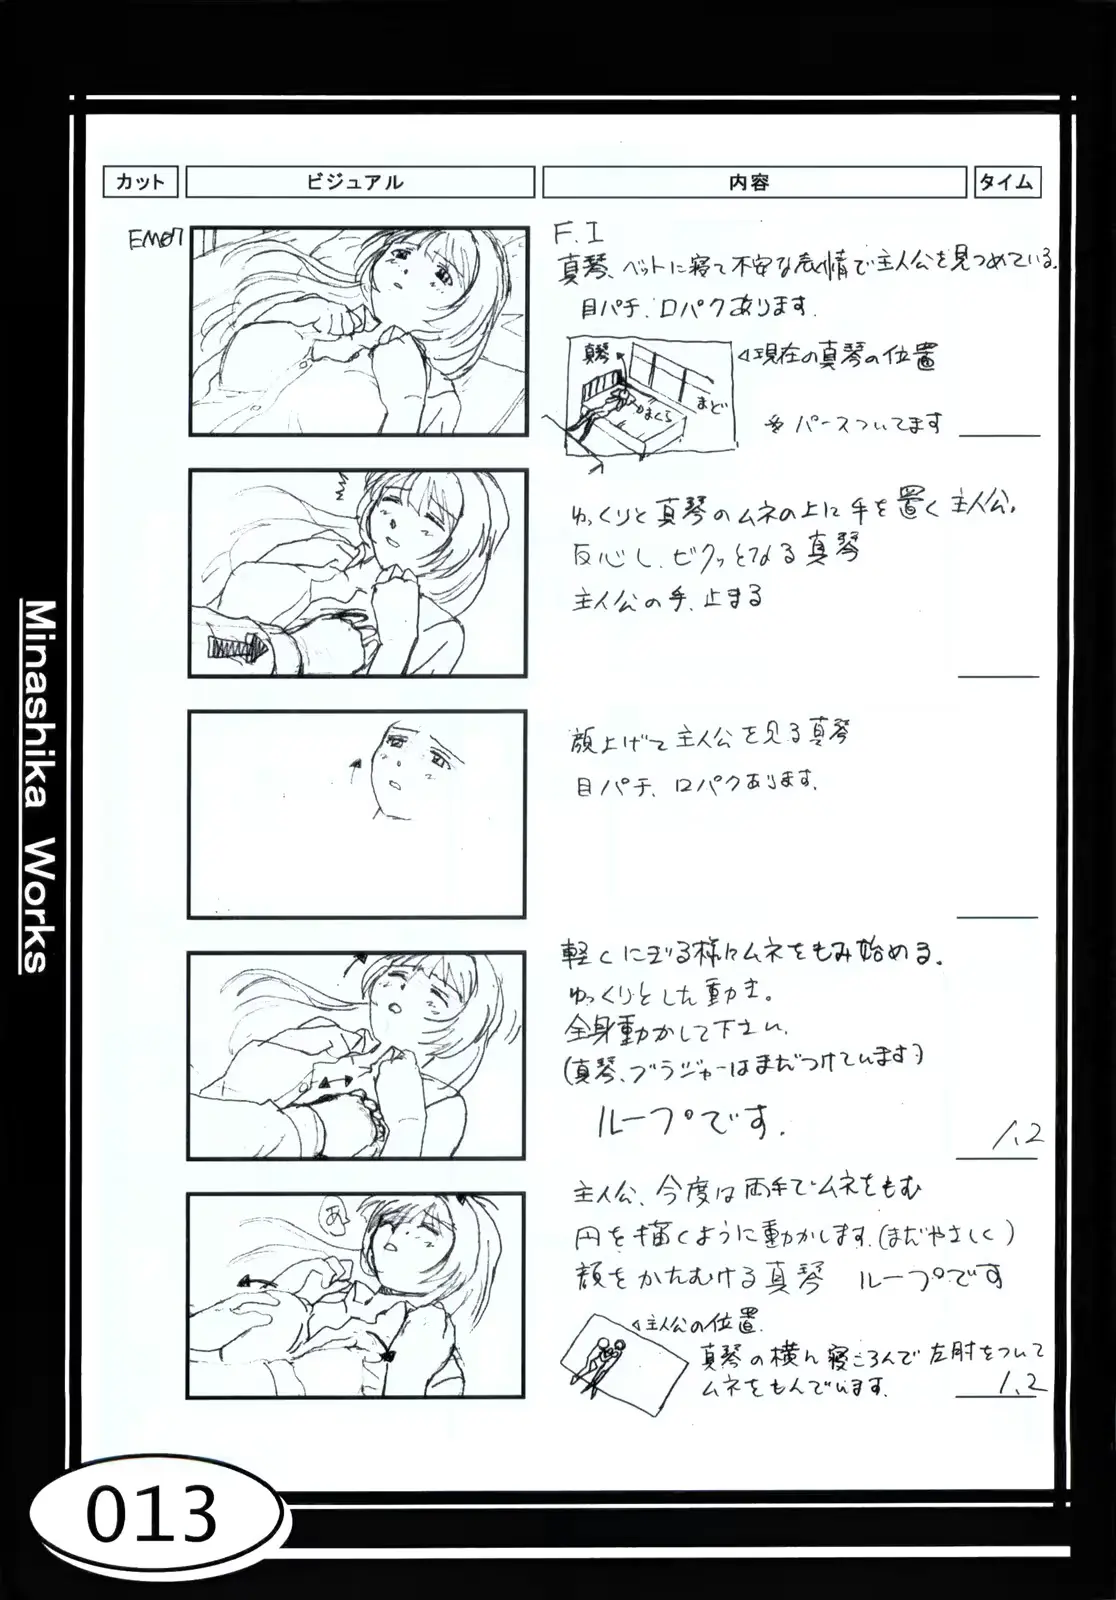 カット
ビジュアル
内容
タイム
EM07
F.I
真琴、ベットに寝て不安な表情で主人公を見つめている。
目パチ、口パクあります。
真琴
まくら
まど
◁現在の真琴の位置
※パースついてます
ゆっくりと真琴のムネの上に手を置く主人公。
反応し、ビクッとなる真琴
主人公の手、止まる
顔上げて主人公を見る真琴
目パチ、口パクあります。
軽くにぎる様にムネをもみ始める。
ゆっくりとした動き。
全身動かして下さい。
(真琴、ブラジャーはまだつけています)
ループです。
1.2
あ
主人公、今度は両手でムネをもむ
円を描くように動かします。(まだやさしく)
顔をかたむける真琴 ループです
◁主人公の位置
真琴の横に寝ころんで左肘をついて
ムネをもんでいます。
1.2
Minashika Works
013